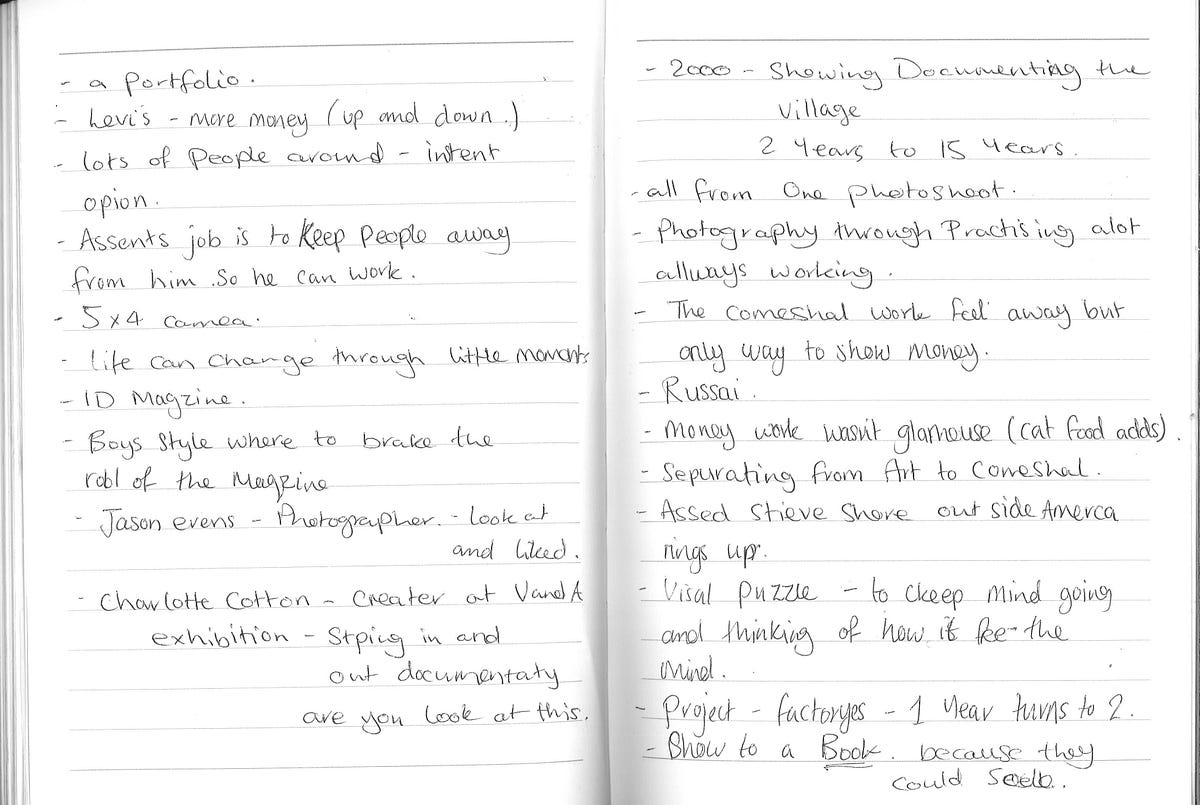 - a portfolio.
- Levi's - more money (up and down.)
- lots of People around - intent
opion.
- Assents job is to Keep People away
from him. So he can work.
- 5x4 camea.
- life can change through little moments
- ID Magzine.
- Boys Style where to brake the
robl of the Magzine
- Jason evens - Photographer. - look at
and liked.
- Charlotte Cotton - Creater at VandA
exhibition - Stping in and
out documentaty
are you look at this.
- 2000 - Showing Documenting the
Village
2 Years to 15 Years.
- all from One photoshoot.
- Photography through Practising alot
allways working.
- The comeshal work feel away but
only way to show money.
- Russai.
- Money work wasn't glamhouse (cat food adds).
- Sepurating from Art to Comeshal.
- Assed Stieve Shore out side Amerca
rings up.
- Visal Puzzle - to ckeep mind going
and thinking of how it the
Mind.
- Project - factoryes - 1 Year turns to 2.
- Show to a Book. because they
could